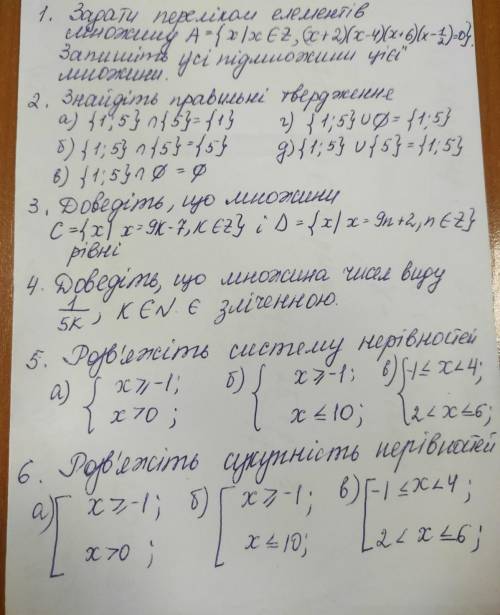 1. Задати переліком елементів
множину A={x|x∈Z,(x+2)(x-4)(x+6)(x-1/2)=0}.
Запишіть усі підмножини цієї
множини.
2. Знайдіть правильні твердження
а) {1;5} ∩ {5} = {1} г) {1;5} ∪ ∅ = {1;5}
б) {1;5} ∩ {5} = {5} д) {1;5} ∪ {5} = {1;5}
в) {1;5} ∩ ∅ = ∅
3. Доведіть, що множини
C={x| x=9k-7, k∈Z} і D={x| x=9n+2, n∈Z}
рівні
4. Доведіть, що множина чисел виду
1/5k, k∈N є зліченною.
5. Розв'яжіть систему нерівностей
а) { x≥-1; б) { x≥-1; в) { -1≤x<4;
x>0; x≤10; 2<x≤6;
6. Розв'яжіть сукупність нерівностей
а) [ x≥-1; б) [ x≥-1; в) [ -1≤x<4;
x>0; x≤10; 2<x≤6;